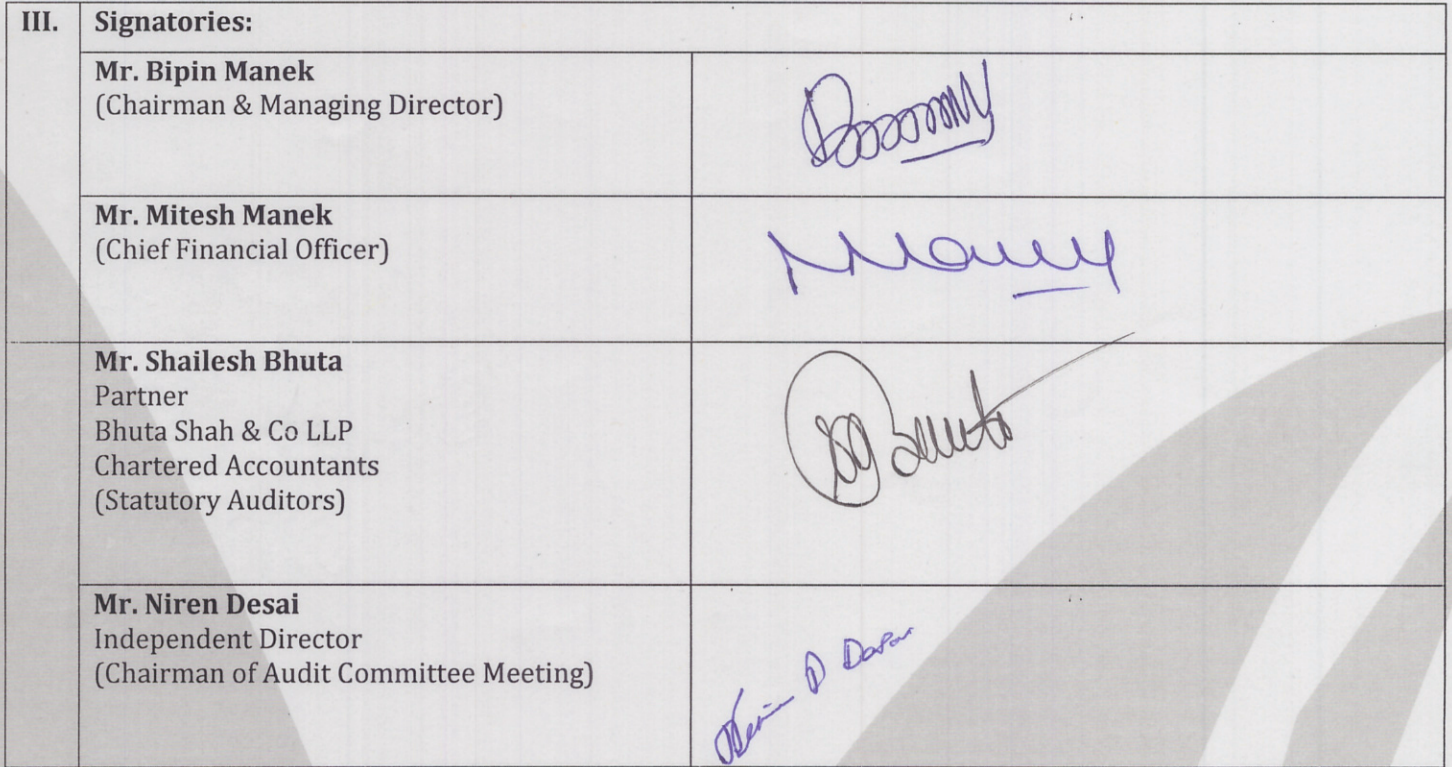 III. Signatories:
Mr. Bipin Manek
(Chairman & Managing Director)
Mr. Mitesh Manek
(Chief Financial Officer)
Mr. Shailesh Bhuta
Partner
Bhuta Shah & Co LLP
Chartered Accountants
(Statutory Auditors)
Mr. Niren Desai
Independent Director
(Chairman of Audit Committee Meeting)